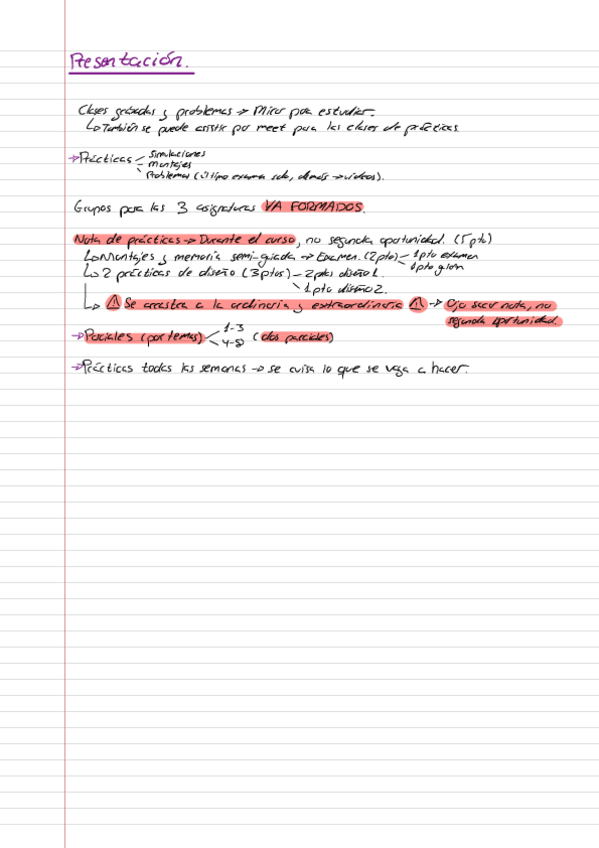 Presentación.
Clases grabadas y problemas → Mirar para estudiar.
↳ También se puede asistir por meet para las clases de prácticas.
→ Prácticas – Simulaciones
– Montajes
\ Problemas (último examen solo, demás → videos).
Grupos para las 3 asignaturas YA FORMADOS.
Nota de prácticas → Durante el curso, no segunda oportunidad. (5pto)
↳ Montajes y memoria semi-guiada → Examen. (2pto) – 1pto examen
1pto guion
↳ 2 prácticas de diseño (3ptos) – 2ptos diseño 1.
\ 1pto diseño 2.
↳ ⚠ Se arrastra a la ordinaria y extraordinaria ⚠ → Ojo sacar nota, no
segunda oportunidad.
→ Parciales (por temas) < 1-3 (dos parciales)
4-8
→ Prácticas todas las semanas → se avisa lo que se vaya a hacer.